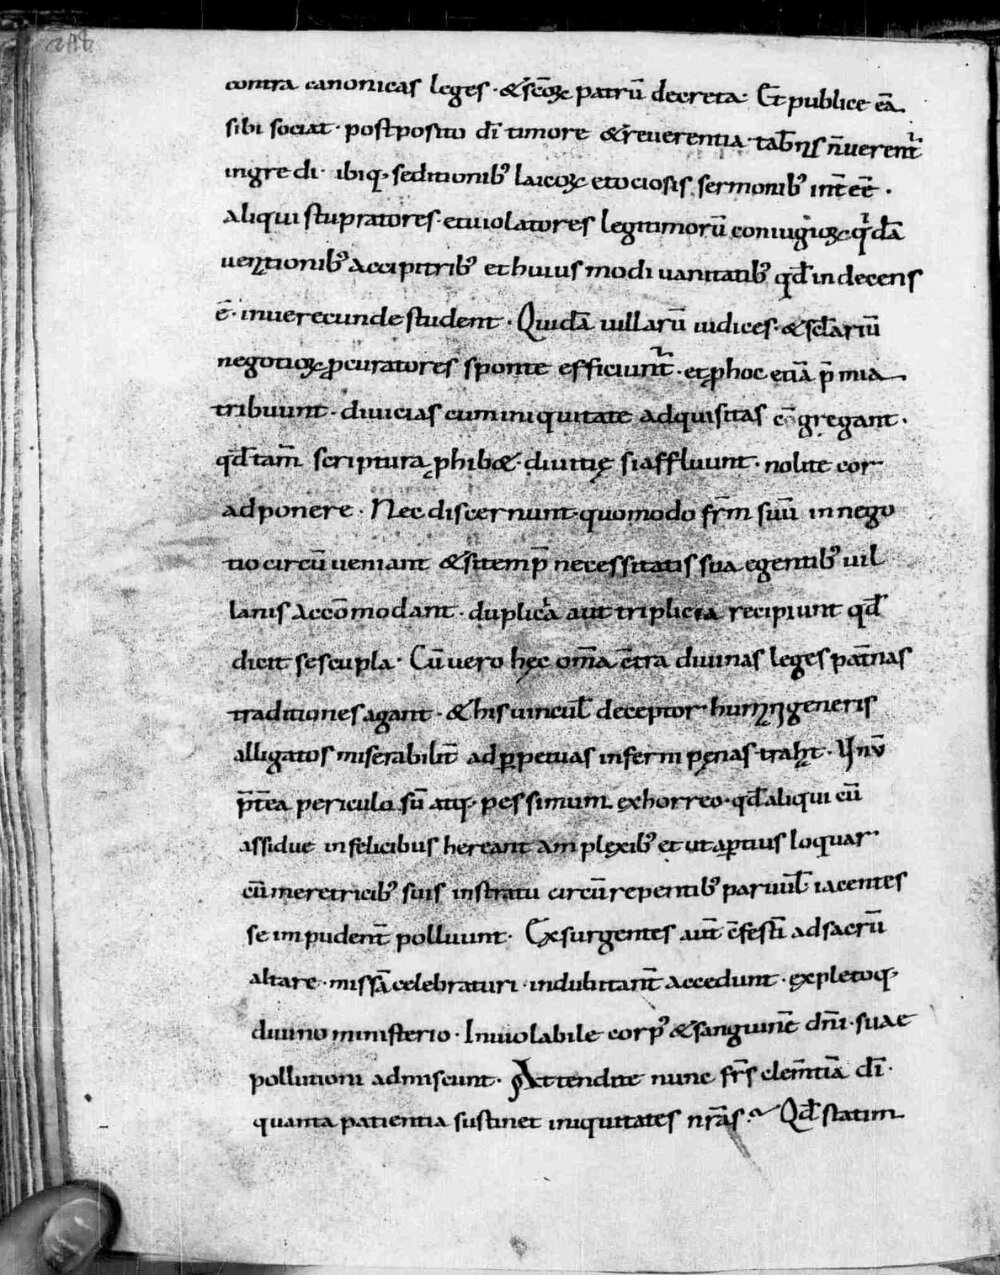 contra canonicas leges · & sc̄oꝝ patrū decreta · Et publice eā
sibi sociat · postposito dī timore & reuerentia · tab̄nis n̄ uerent᷑
ingredi · ibiq; seditionib; laicoꝝ et ociosis sermonib; int̄ eē ·
Aliqui stupratores et uiolatores legitimorū coniugioꝝ · qͥdā
uenationib; accipitrib; et huius modi uanitatib; qđ indecens
ē · inuerecunde student · Quidā uillarū iudices · & sclariū
negotioꝝ ꝓcuratores sponte efficiunt᷑ · et ꝓ hoc etiā p̄mia
tribuunt · diuicias cum iniquitate adquisitas cōgregant ·
qđ tam̄ scriptura ꝓhib& · diuitię si affluunt · nolite cor
adponere · Nec discernunt quomodo fr̄m suū in nego
tio circūueniant & si temp̄ necessitatis sua egentib; uil
lanis accōmodant · duplicia aut triplicia recipiunt qđ
dicit sescupla · Cū uero hęc om̄a c̄tra diuinas leges pat̄nas
traditiones agant · & his uincul̄ deceptor humani generis
alligatos miserabilit̄ ad ꝑpetuas inferni pęnas trah&#803;t · In uno
p̄t̄ea periculo sū atq; pessimum exhorreo · qđ aliqui cū
assidue infelicibus hereant amplexib; et ut aptius loquar
cū meretricib; suis in stratu circūrepentib; paruul̄ iacentes
se impudent̄ polluunt · Exsurgentes aut̄ c̄festī ad sacrū
altare · missā celebraturi · indubitant̄ accedunt · expletoq;
diuino ministerio · Inuiolabile corp; & sanguinē dn̄i · suae
pollutioni admiscent · Attendite nunc fr̄s clem̄tiā dī ·
quanta patientia sustinet iniquitates nr̄as · Qđ statim